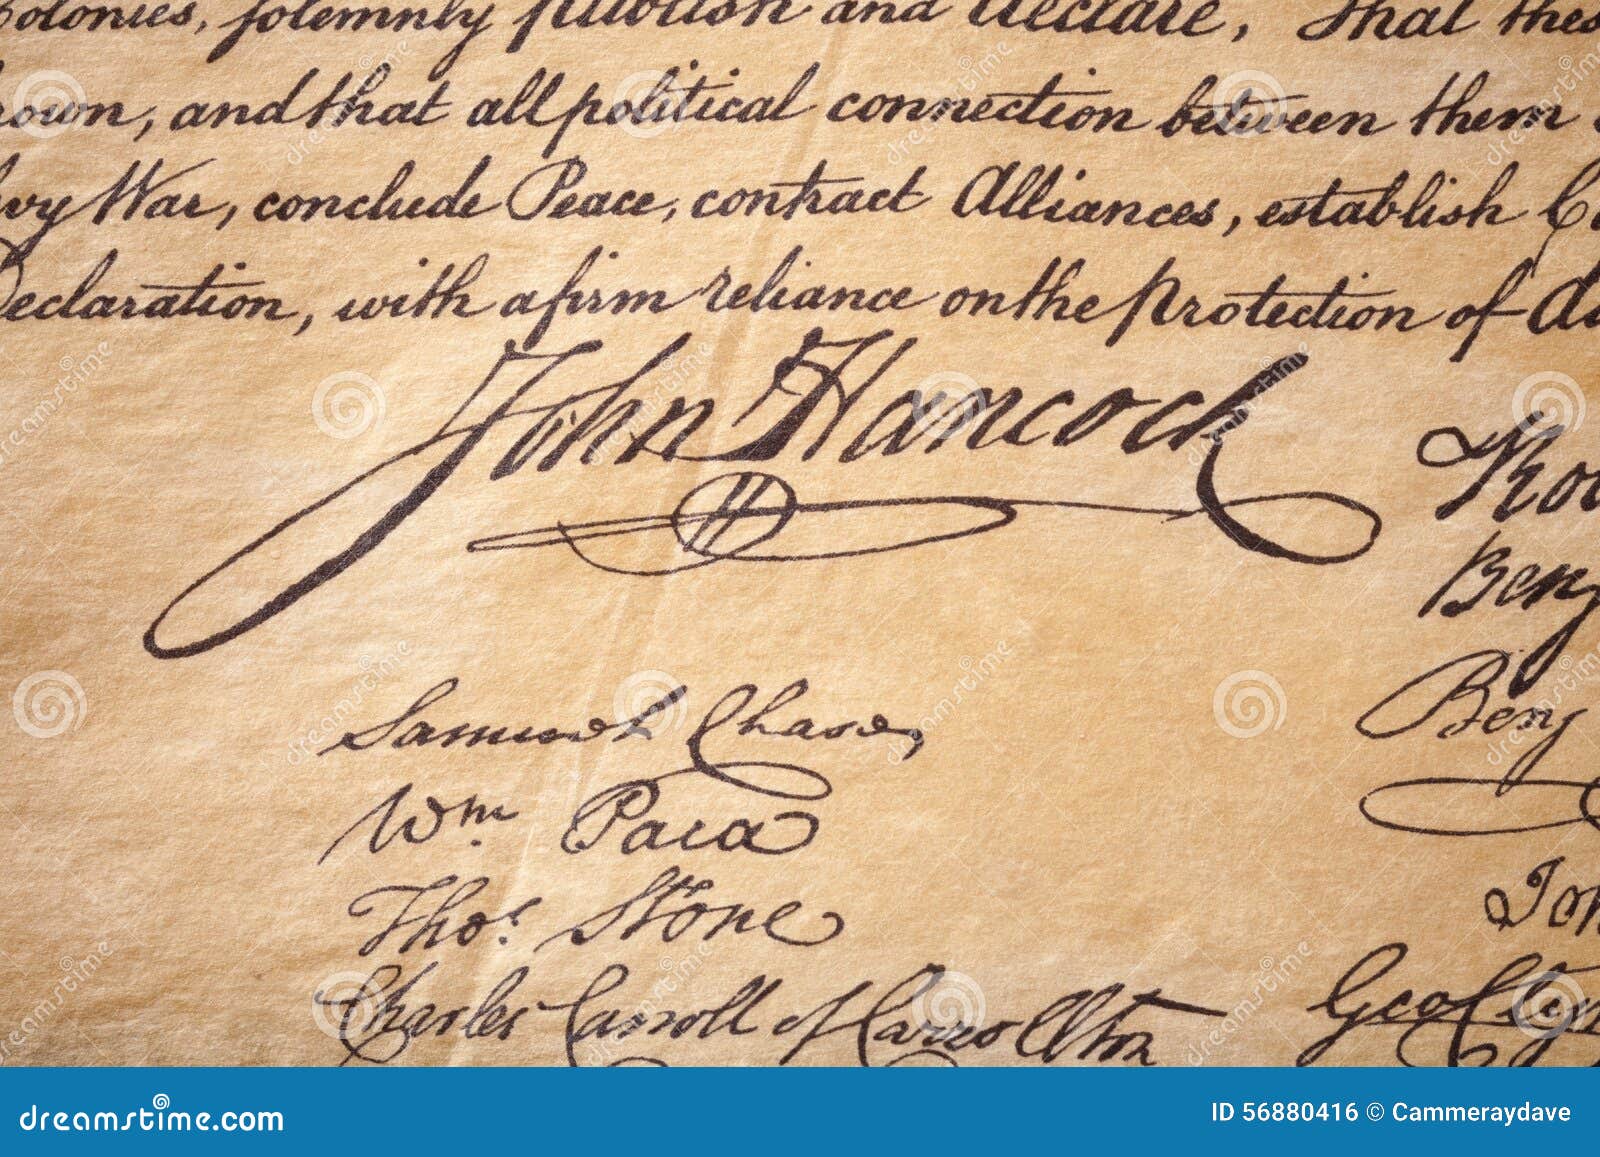 Colonies, solemnly publish and declare, That these
rown, and that all political connection between them
evy War, conclude Peace, contract Alliances, establish Co
Declaration, with a firm reliance on the Protection of di
John Hancock
Rob
Benj
Samuel Chase,
Benj
Wm. Paca
Thos. Stone
Joh
Charles Carroll of Carrollton
Geo Clym
dreamstime.com
ID 56880416 © Cammeraydave